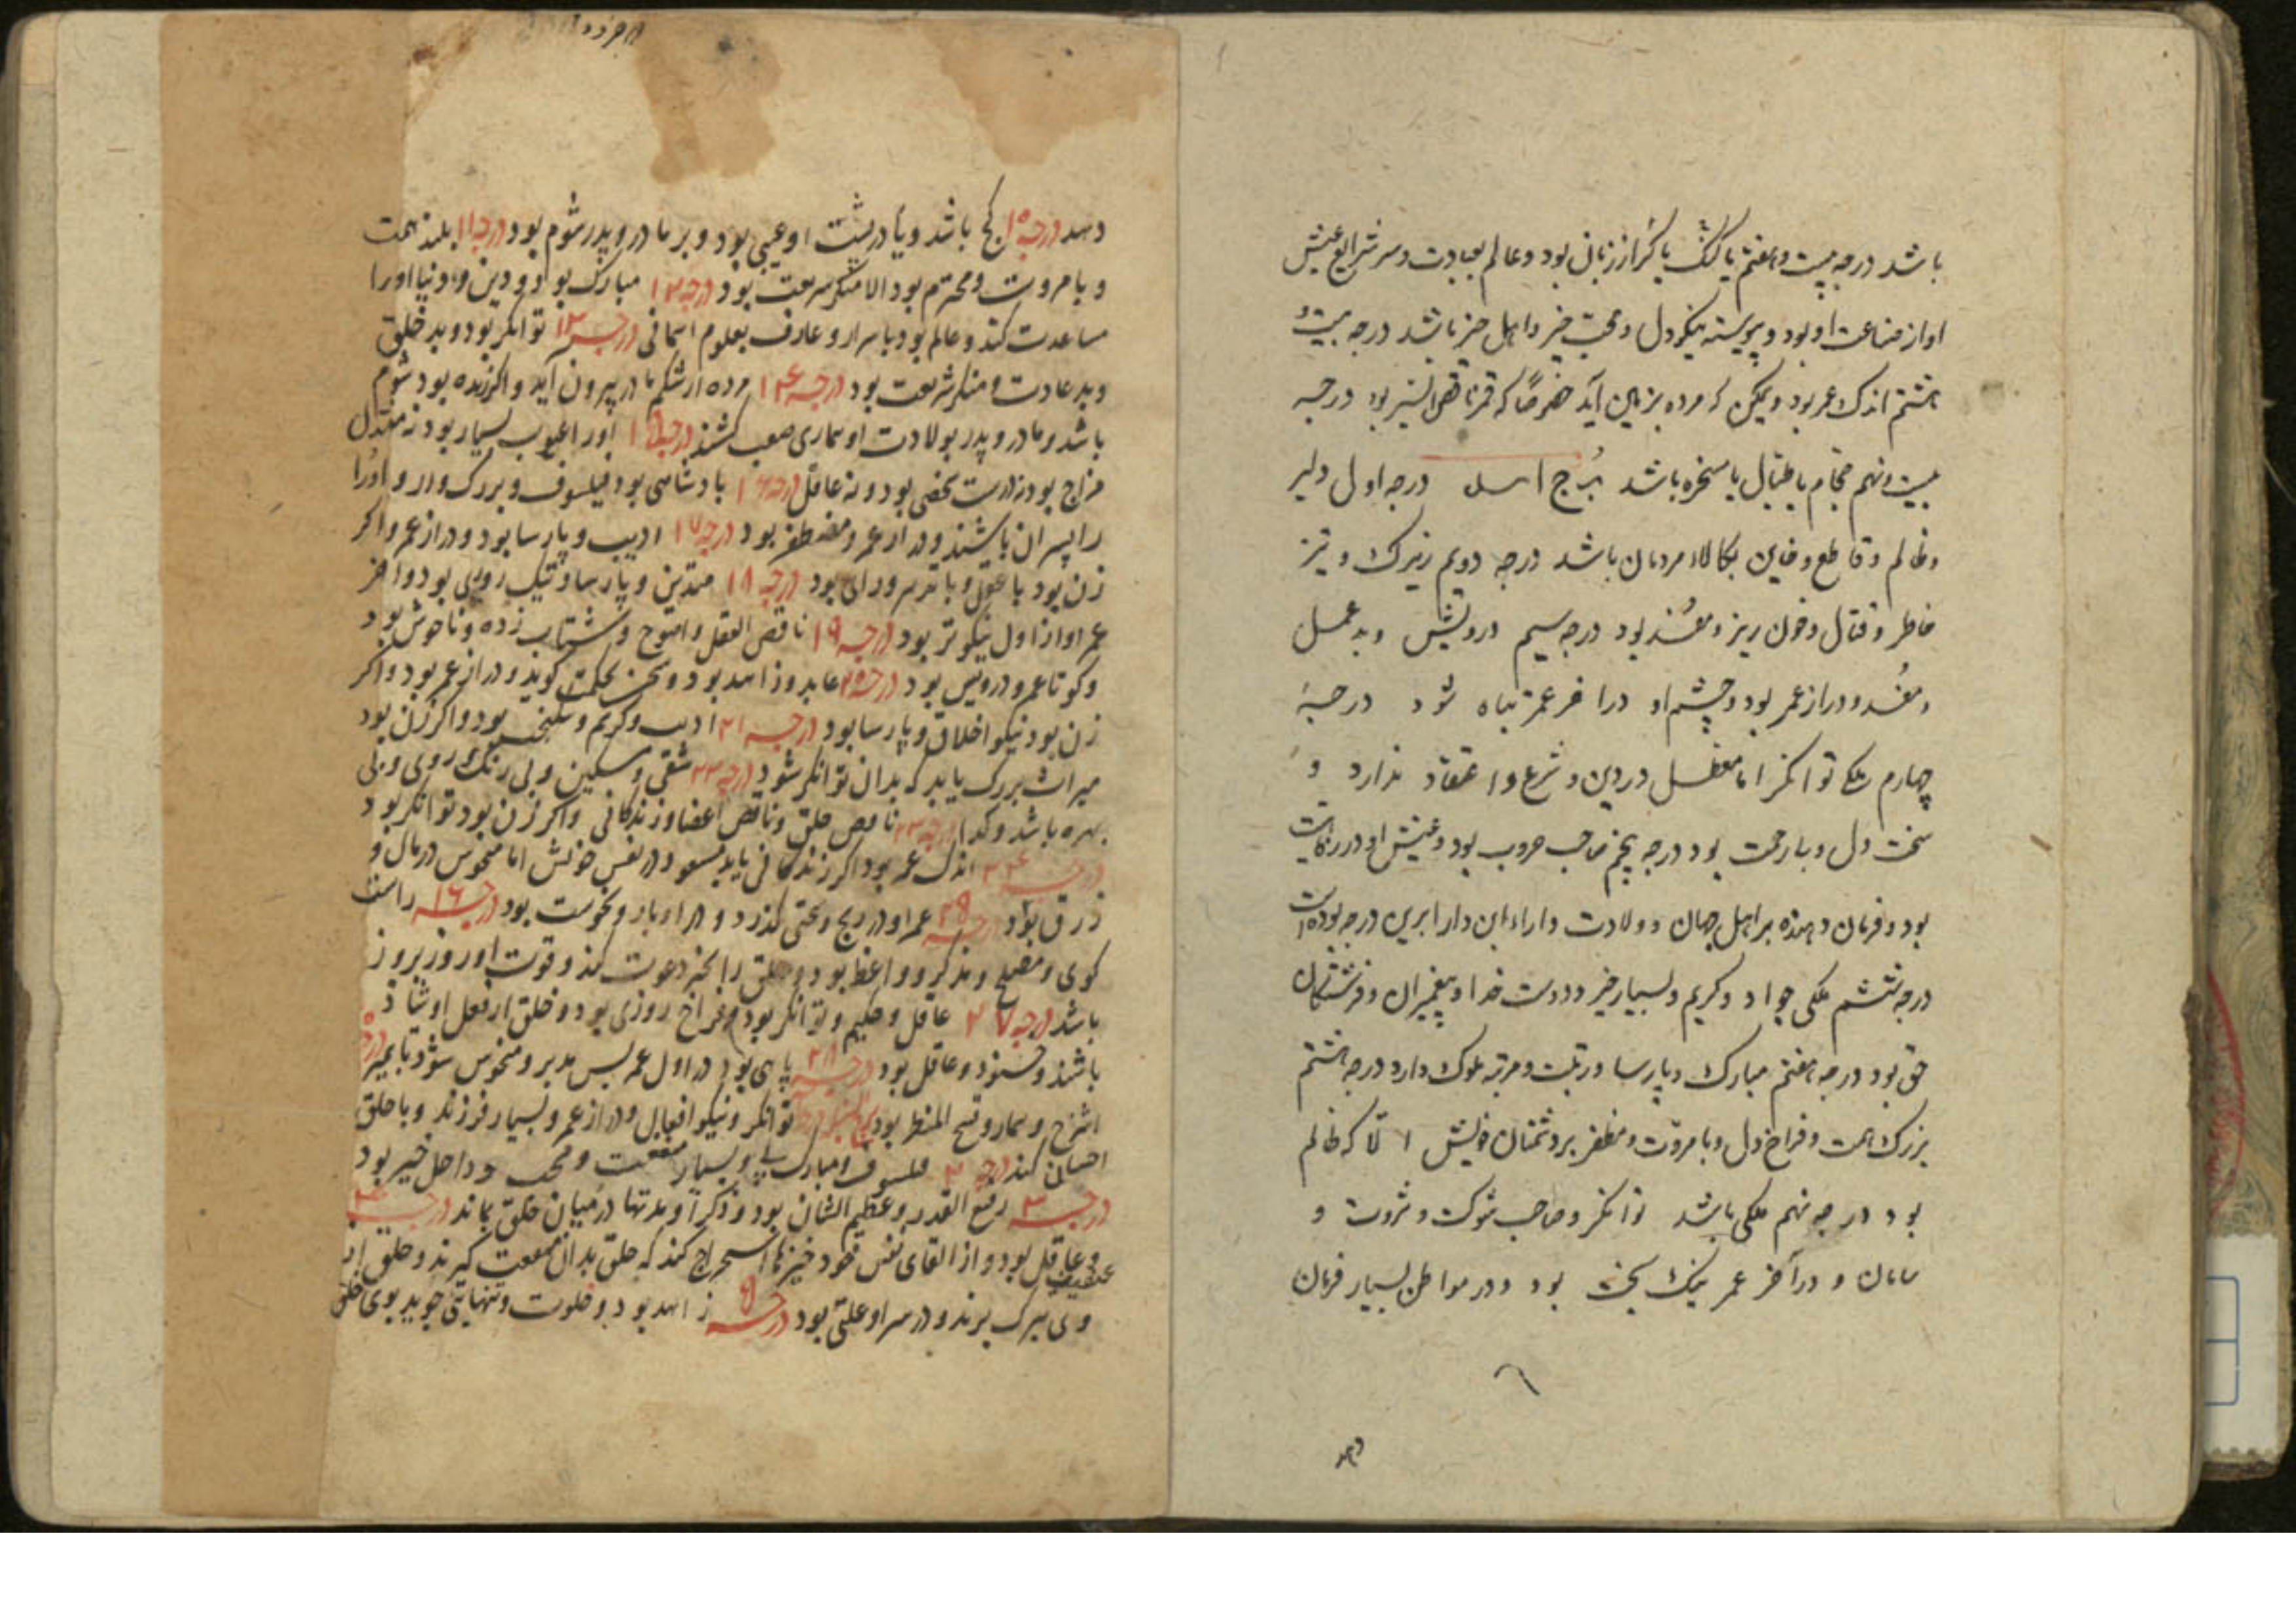 باشد درجه بیست و هفتم یا گنگ یا کر از زبانی بود و عالم بعبادت و سر شرایع عیش
او از صناعت او بود و پیوسته نیکو دل و محب خیر و اهل خیر باشد درجه بیست و
هشتم اندک عمر بود و یمکن که مرده بزمین آید خصوصاً که قمر ناقص السیر بود درجه
بیست و نهم حجام یا طبال یا مسخره باشد بُرج اسد درجه اول دلیر
و ظالم و قاطع و خاین بکالاء مردمان باشد درجه دویم زیرک و تیز
خاطر و قتال و خون ریز و مفسد بود درجه سیم درویش و بد عمل
و مفسد و دراز عمر بود و چشم او در اخر عمر تباه شود درجهٔ
چهارم ملکی توانکر اما در دین و شرع و اعتقاد ندارد و
سخت دل و بی رحمت بود درجه پنجم صاحب حروب بود و عیش او در
بود و فرمان دهنده بر اهل جهان و ولادت داراء ابن دارا برین درجه بوده است
درجه ششم ملکی جواد و کریم و بسیار خیر و دوست خدا و پیغمبران و فرشتکان
حق بود درجه هفتم مبارک و پارسا و رتبت و مرتبه ملوک دارد درجه هشتم
بزرک همت و فراخ دل و با مروت و مظفر بر دشمنان خویش الّا که ظالم
بود درجه نهم ملکی باشد توانکر و صاحب شوکت و ثروت و
سامان و در آخر عمر نیک بخت بود و در مواطن بسیار فرمان
دهد
دهد درجه ۱۰ کج باشد و یا در پشت او عیبی بود و بر مادر و پدر شوم بود درجه ۱۱ بلند همت
و با مروت و محترم بود الا منکر شریعت بود درجه ۱۲ مبارک بود و دین و دنیا او را
مساعدت کند و عالم بود باسرار و عارف بعلوم آسمانی درجه ۱۳ توانکر بود و بد خلق
و بد عادت و منکر شریعت بود درجه ۱۴ مرده از شکم مادر بیرون آید و اکر زنده بود شوم
باشد و مادر و پدر بولادت او بیماری صعب کشند درجه ۱۵ او را عیوب بسیار بود نه معتدل
مزاج بود نه درست شخصی بود و نه عاقل درجه ۱۶ پادشاهی بود فیلسوف و بزرک وار و او را
را پسران باشند و دراز عمر و مظفر بود درجه ۱۷ ادیب و پارسا بود و دراز عمر و اکر
زن بود با عقل و با تدبیر و رای بود درجه ۱۸ متدین و پارسا و نیک روی بود و آخر
عمر او از اول نیکوتر بود درجه ۱۹ ناقص العقل و شتاب زده و ناخوش بود
و کوتا عمر و درویش بود درجه ۲۰ عابد و زاهد بود و سخن بحکمت کوید و دراز عمر بود و اکر
زن بود نیکو اخلاق و پارسا بود درجه ۲۱ ادیب و کریم و بود و اکر زن بود
میراث بزرک یابد که بدان توانکر شود درجه ۲۲ شقی و مسکین و بی رنک روی و بی
بهره باشد و کدا درجه ۲۳ ناقص خلق و ناقص اعضا و زندکانی و اکر زن بود توانکر بود
درجه ۲۴ اندک عمر بود اکر زندکانی یابد مسعود در نفس خویش اما منحوس در مال و
رزق بود درجه عمر او در رنج و سختی کذرد و در ادبار و نحوست بود درجه ۱۶ راست
کوی و مصلح و مذکر و واعظ بود و خلق را بخیر دعوت کند و قوت او روز بروز
باشد درجه ۲۷ عاقل و حکیم و توانکر بود و فراخ روزی بود و خلق از فعل او شاد
باشند و خشنود و عاقل بود درجه ۲۸ بود در اول عمر پس مدبر و منحوس شود تا بمیرد
و بیمار و قبیح المنظر بود توانکر و نیکو افعال و دراز عمر و بسیار فرزند و با خلق
احسان کند درجه ۲ فلسوف و مبارک پی و بسیار منفعت و محب و داخل خیر بود
درجه ۳ رفیع القدر و عظیم الشان بود و ذکر او مدتها در میان خلق بماند درجه ۴
عفیف و عاقل بود و از القای نفس خود خیزها استخراج کند که خلق بدان منفعت کیرند و خلق از
وی تبرک برند و در سر او علتی بود درجه ۵ زاهد بود و خلوت و تنهایی جوید